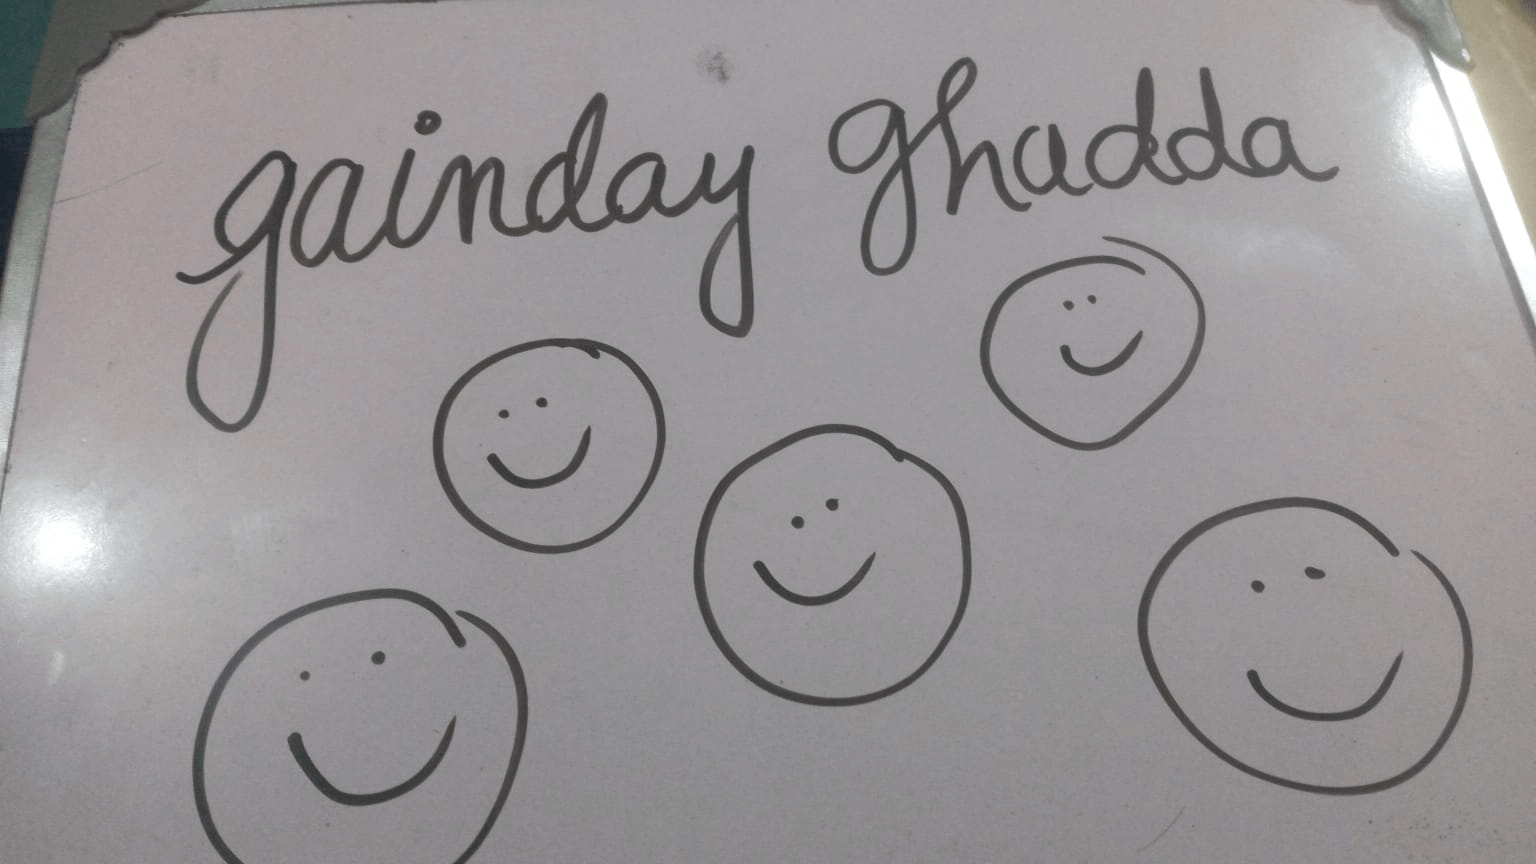 gainday ghadda